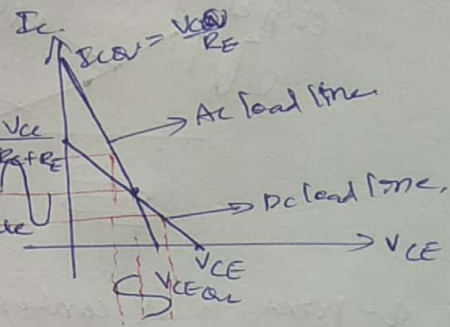 Ic
ICQ = VCQ
RE
Ac load line
Vcc
RC+RE
Dc load line.
VCE
VCE
VCEQ